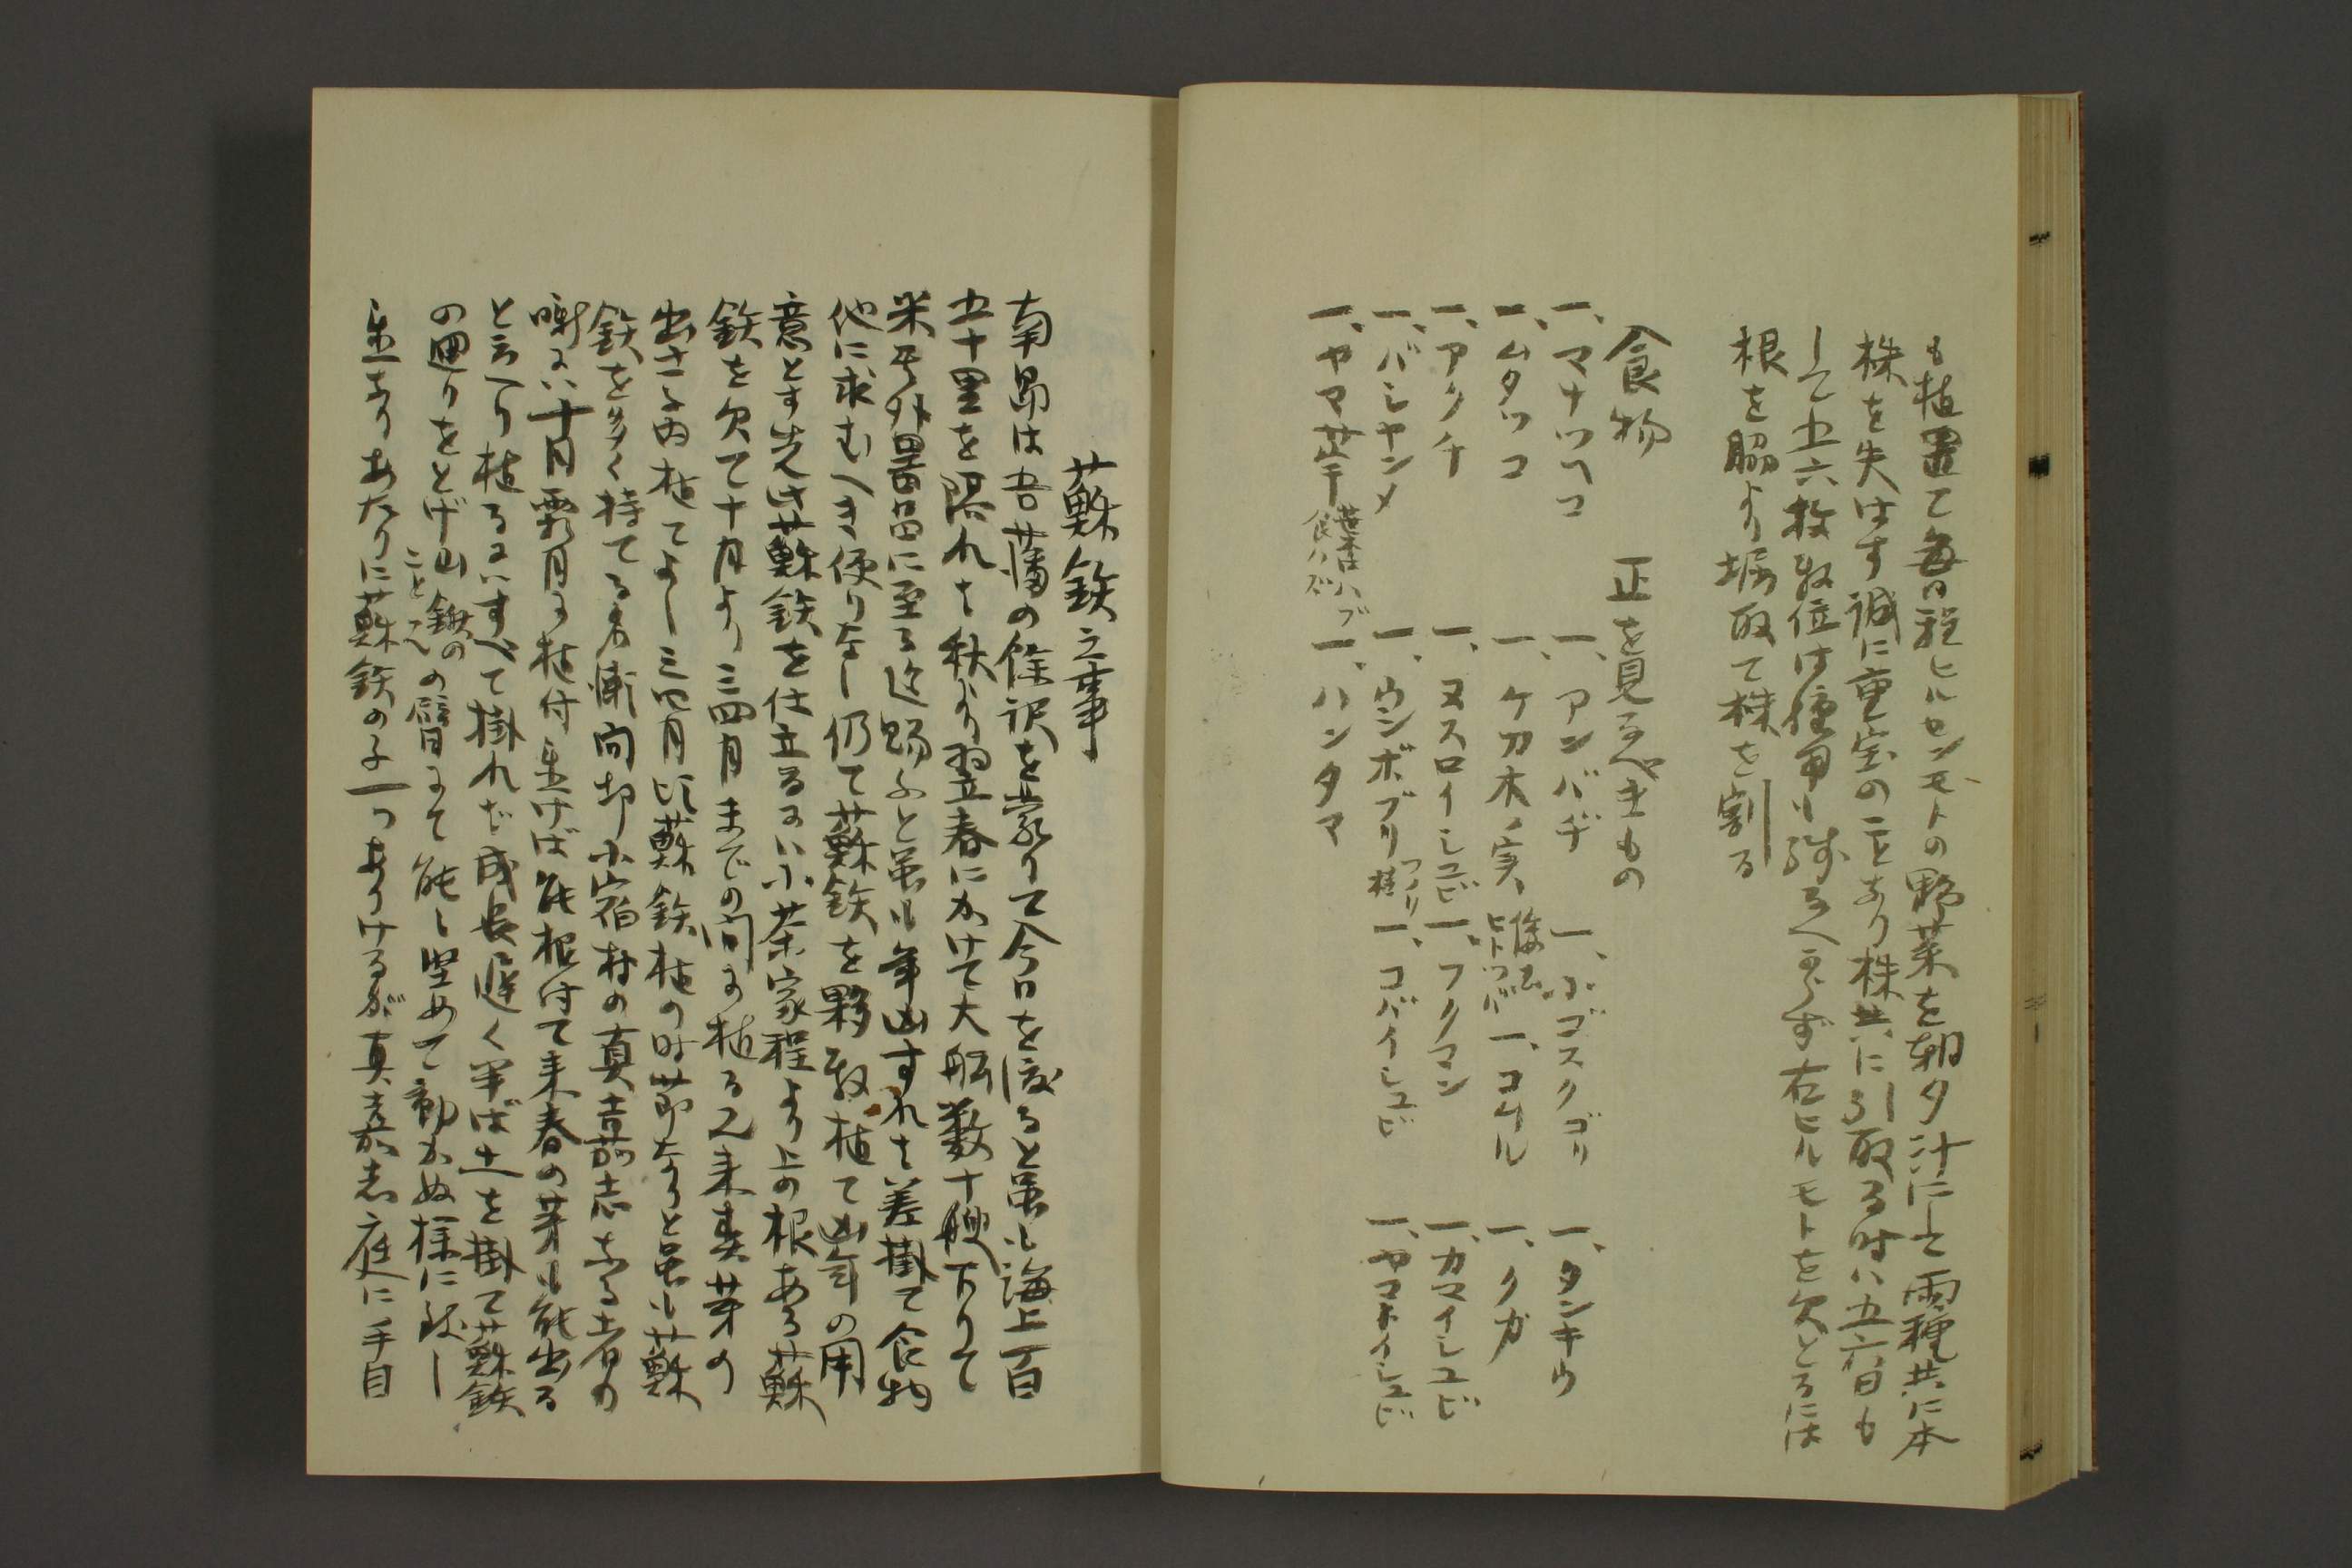 も植置て毎日程ヒルセンモトの野菜を朝夕汁にして両種共に本
株を失はす誠に重宝のことなり株共に引取る時ハ五六日も
して五六枚数位は種用ル残るへからず右ヒルモトを欠とるには
根を脇より堀取て株を割る
食物　　正を見るべきもの
一、マナツヘコ　一、アンバヂ　一、小ゴスクゴリ　一、タンキウ
一、ムタツコ　一、ケカ木ノ実　ヒトツバ　一、コムル　一、クガ
一、アクチ　一、ヌスロイシユビ　一、フクマン　一、カマイシユビ
一、バシヤンメ　一、ウンボブリ　一、コバイシユビ　一、ヤマトイシユビ
一、ヤマ芋　一、ハンタマ
蘇鉄之事
南島は吾藩の餘沢を蒙りて今日を渡ると虽も海上一百
五十里を隔れて秋より翌春にかけて大船数十艘下りて
米其外器具に至る迄賜ふと虽ル年凶すれて差掛て食物
他に求むへき便りなし仍て蘇鉄を夥敷植て凶年の用
意とす先は蘇鉄を仕立るハ小茶家程より上の根ある蘇
鉄を欠て十月より三四月までの間に植る又来春芽の
出さる内植てよし三四月頃蘇鉄植の時節なりと虽ル蘇
鉄を多く持てる名瀬間切小宿村の真嘉志なる者の
噺にハ十月霜月に植付置けば能根付て来春の芽ル能出る
と云へり植るにハすべて掛れど成長遅く半ば土を掛て蘇鉄
の廻りをとげ山鍬のことくの臂にて能し堅めて動かぬ様に致し
置なりあたりに蘇鉄の子一つありけるが真嘉志庭に手自